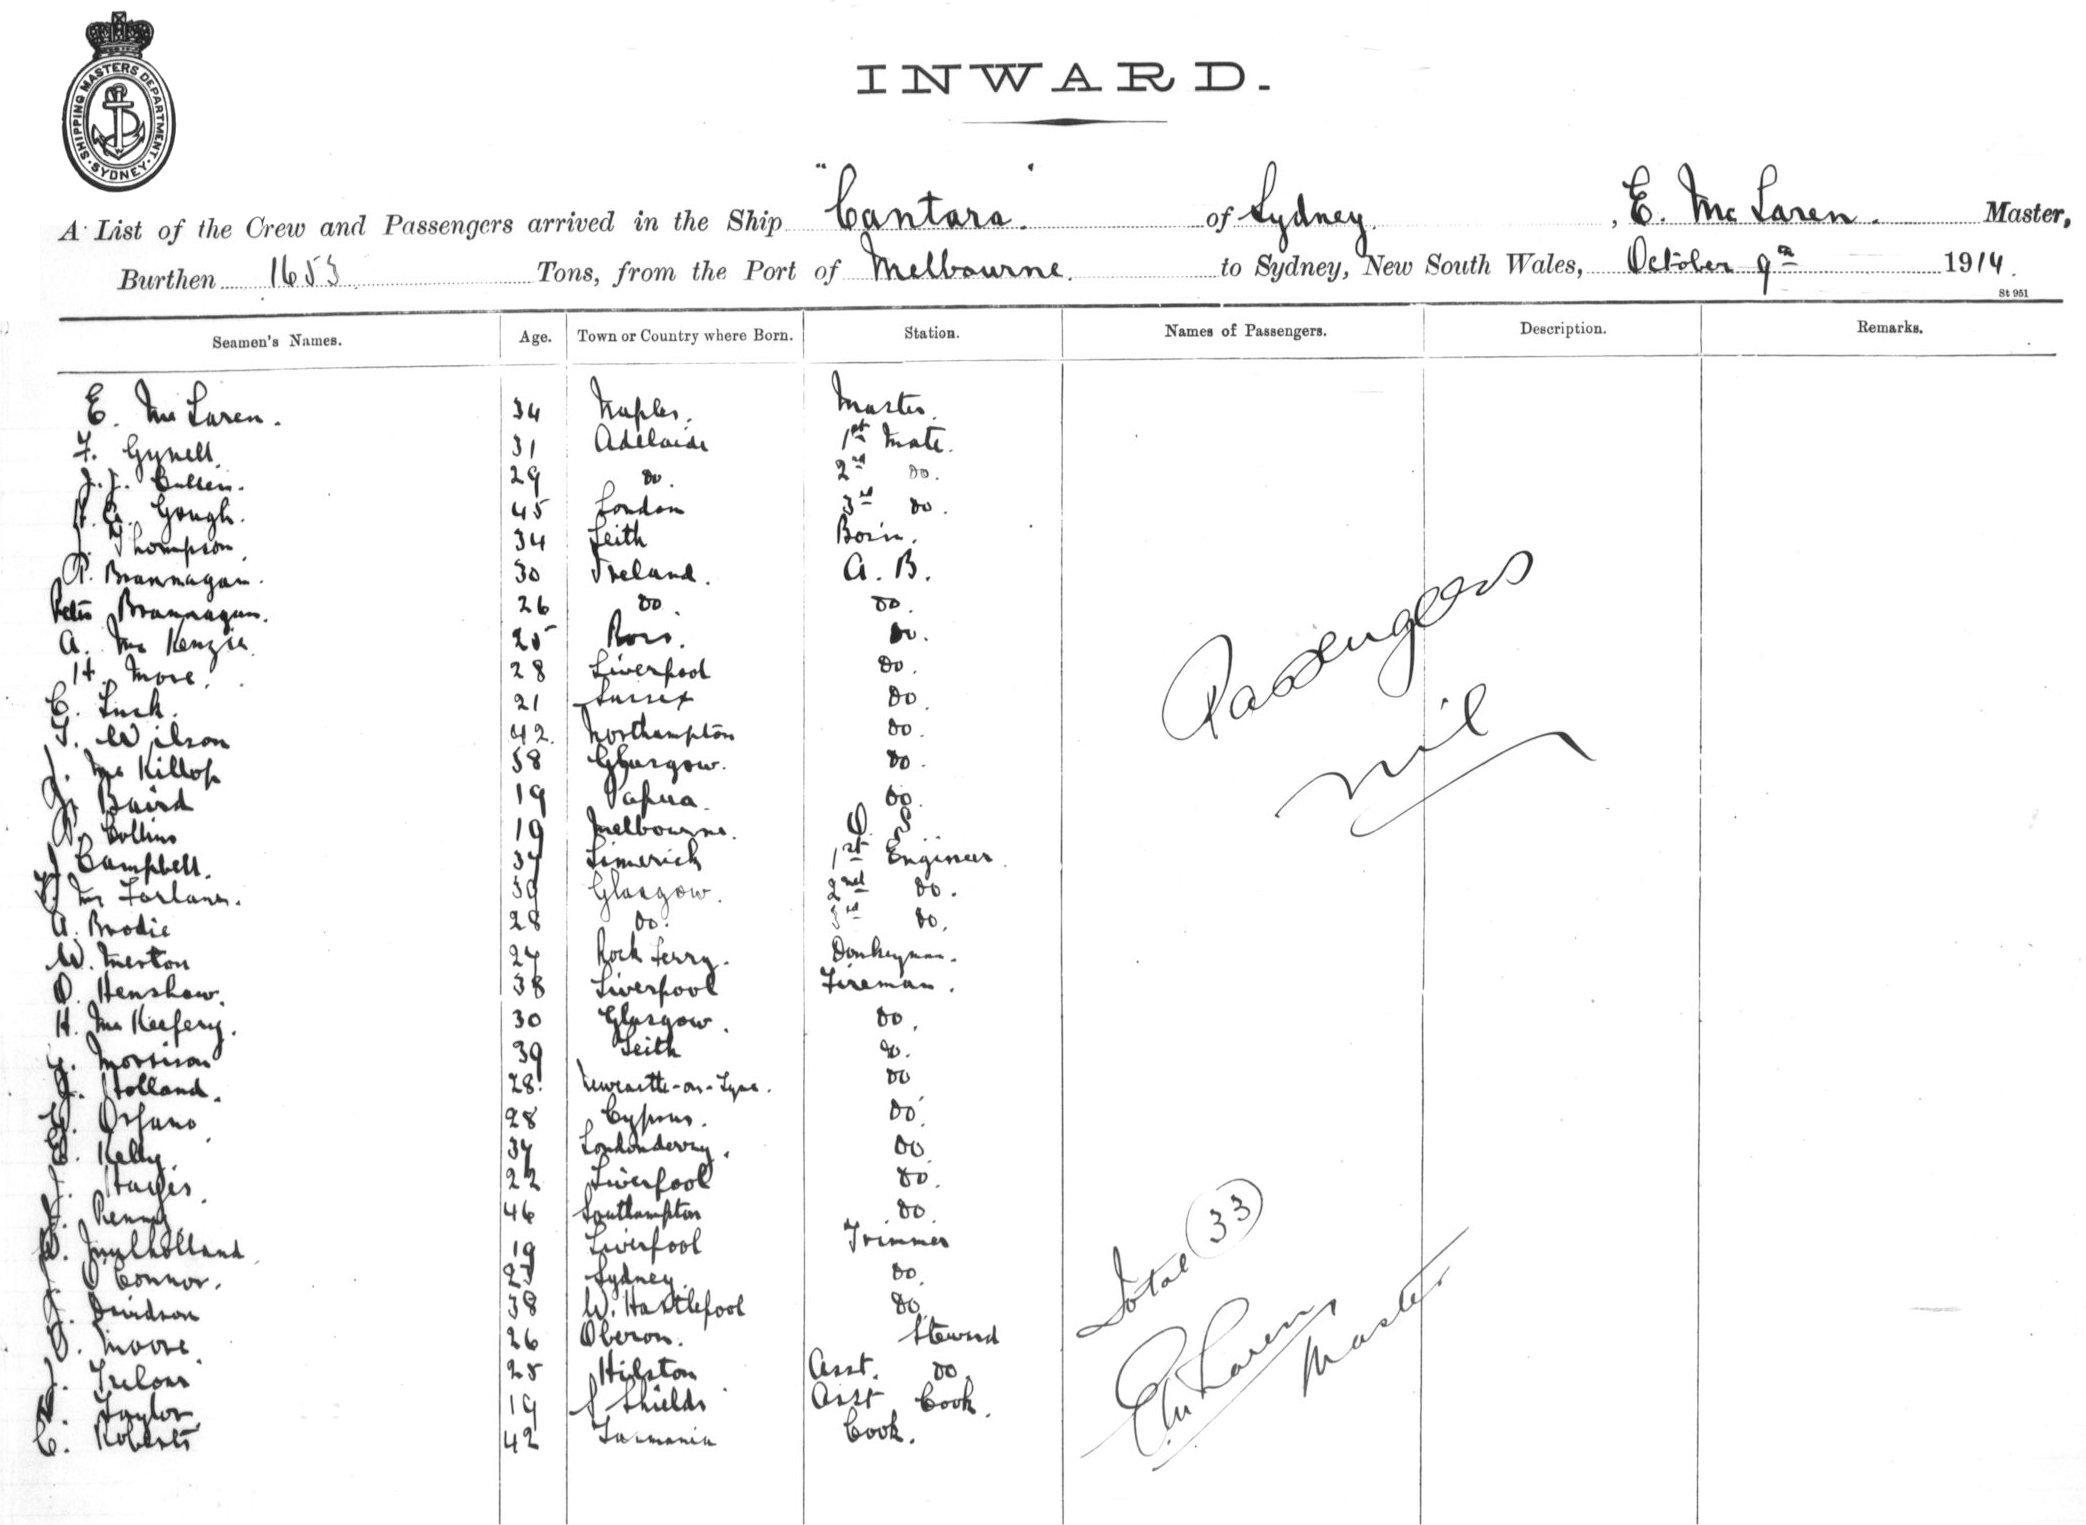 SHIPPING MASTERS DEPARTMENT. SYDNEY
INWARD.
A List of the Crew and Passengers arrived in the Ship "Cantara" of Sydney, E. Mc Laren. Master,
Burthen 1653 Tons, from the Port of Melbourne. to Sydney, New South Wales, October 9th 1914.
St 951
Seamen's Names. Age. Town or Country where Born. Station. Names of Passengers. Description. Remarks.
E. Mc Laren. 34 Naples. Master.
F. Gynell. 31 Adelaide 1st Mate.
J. J. Cullen. 29 Do. 2nd Do.
Gough. 45 London 3rd Do.
J. Thompson. 34 Leith Bosn.
P. Brannagan. 30 Ireland. A. B.
Peter Brannagan. 26 Do. Do.
A. Mc Kenzie. 25 Do.
H. More. 28 Liverpool Do.
C. Luck. 21 Sussex Do.
T. Wilson 42. Northampton Do.
J. Mc Killop 58 Glasgow. Do.
J. Baird 19 Papua. Do.
Collins 19 Melbourne. O. S.
J Campbell. 37 Limerick 1st Engineer.
Mc Farlane. 39 Glasgow. 2nd Do.
A. Brodie 28 Do. 3rd Do.
W. Merton 27 Rock Ferry. Donkeyman.
D. Henshaw. 38 Liverpool Fireman.
H. Mc Keefery. 30 Glasgow. Do.
Morrison 39 Leith Do.
J. Holland. 28. Newcastle-on-Tyne. Do
Orfano. 28 Cyprus. Do.
E. Kelly. 37 Londonderry. Do.
J. Hayes. 22 Liverpool Do.
Penny 46 Southampton Do.
Mulholland 19 Liverpool Trimmer
J. O'Connor. 23 Sydney. Do.
J. Davidson 38 W. Hartlepool Do.
Moore. 26 Oberon. Steward
J. 25 Hilston Asst. Do.
Taylor. 19 S Shields Asst Cook.
C. Roberts 42 Tasmania Cook.
Passengers
nil
Total 33
E Mc Laren
Master